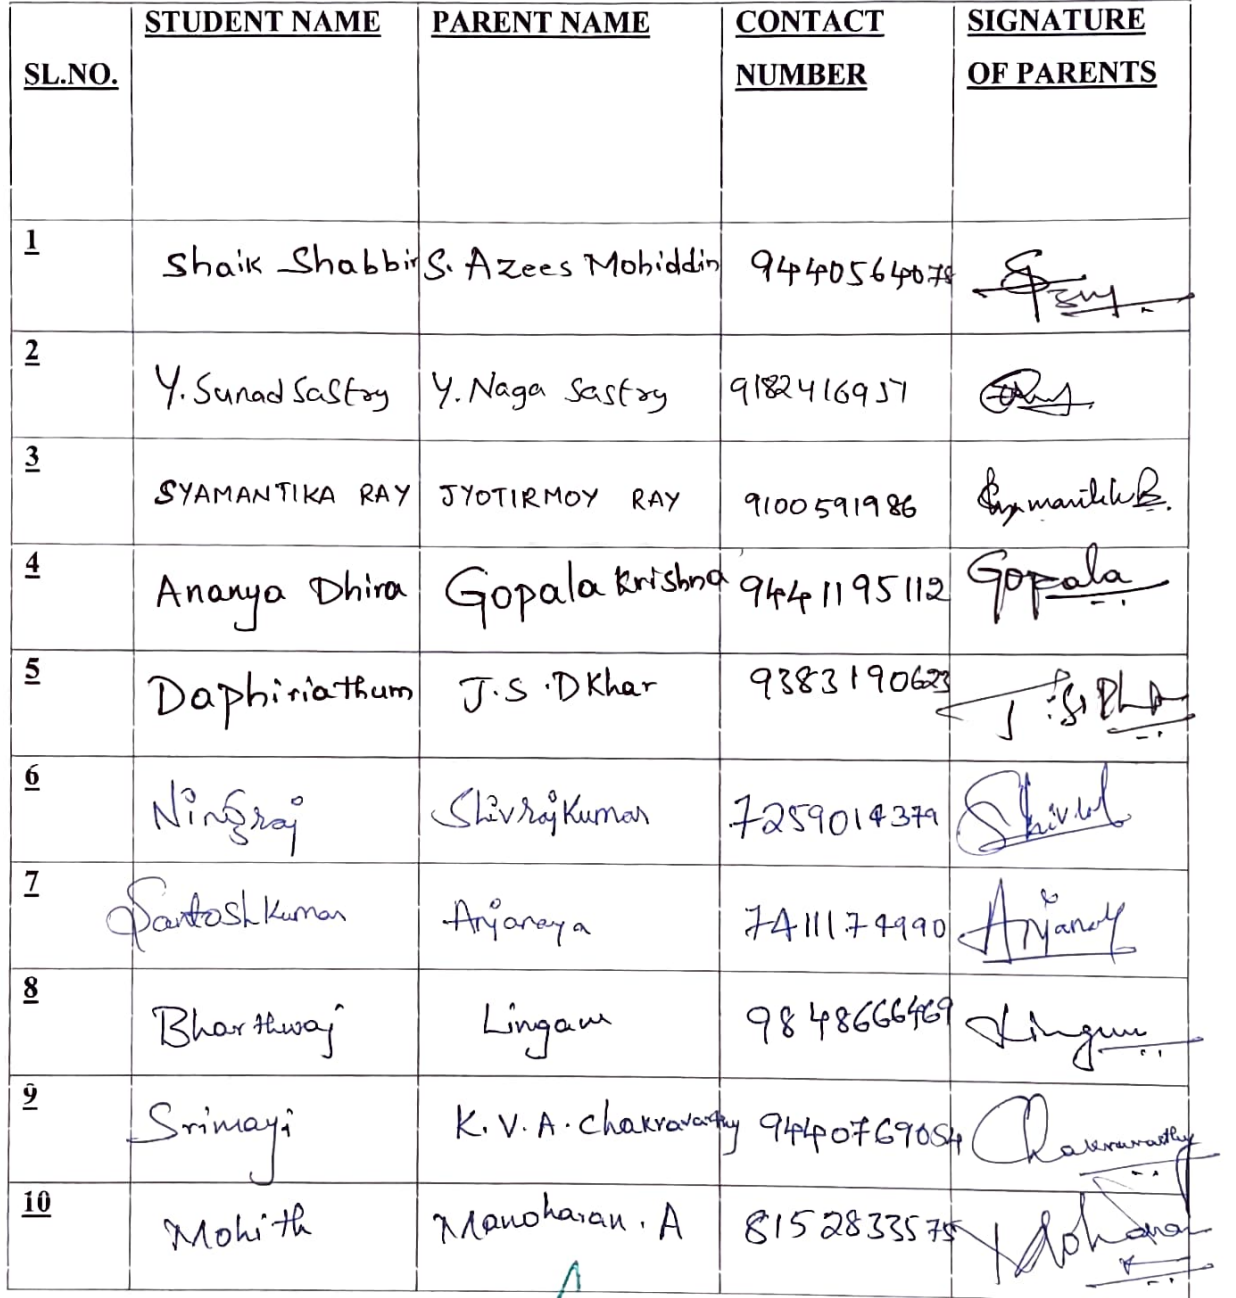 SL.NO. STUDENT NAME PARENT NAME CONTACT NUMBER SIGNATURE OF PARENTS
1 Shaik Shabbir S. Azees Mohiddin 9440564078
2 Y. Sunad Sastry Y. Naga Sastry
3 SYAMANTIKA RAY JYOTIRMOY RAY 9100591986
4 Ananya Dhira Gopala Krishna 9441195112 Gopala
5 Daphiriathum J.S. DKhar 9383190623
6 Ningraj Shivrajkumar 7259014379
7 Santosh Kumar Anjaneya 7411174990
8 Bharthwaj Lingam 9848666469
9 Srimayi K.V.A. Chakravarthy 9440769054 Chakravarthy
10 Mohith Manoharan. A 8152833575